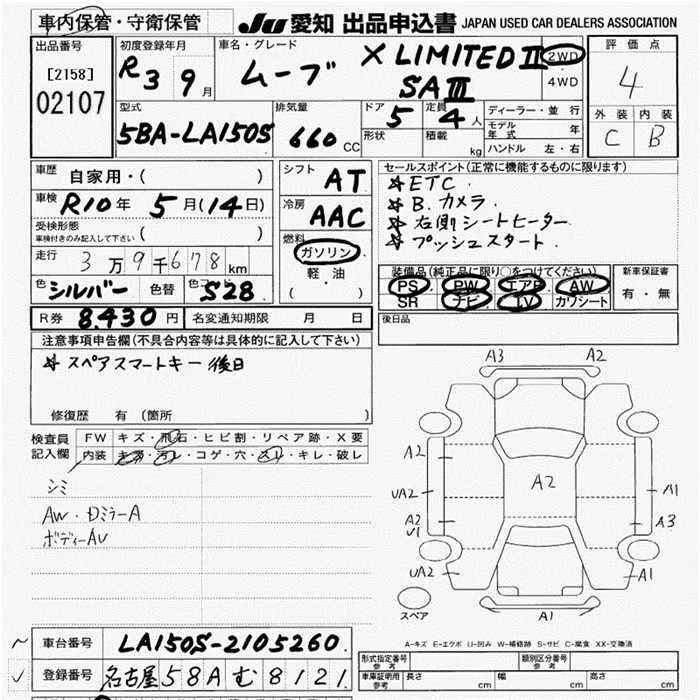 車内保管・守衛保管 JU 愛知 出品申込書 JAPAN USED CAR DEALERS ASSOCIATION
出品番号 初度登録年月 車名・グレード 評価点
[2158] R3 9月 ムーブ X LIMITEDⅡ 2WD・4WD 4
02107 SAⅢ
型式 排気量 ドア 定員 ディーラー・並行 外装 内装
5BA-LA150S 660 CC 5 4人 モデル年式 年 C B
形状 積載 kg ハンドル 左・右
車歴 自家用・( ) シフト AT セールスポイント(正常に機能するものに限ります)
車検 R10年 5月(14日) 冷房 AAC ☆ETC.
受検形態 ( ) ☆B.カメラ.
車検付きのみ記入して下さい 燃料 ☆右側シートヒーター.
走行 3万9千678km ガソリン ☆プッシュスタート.
軽・油
( )
色 シルバー 色替 色コード S28
装備品(純正品に限り○をつけてください) 新車保証書
PS PW エアB AW 有・無
SR ナビ TV カワシート
R券 8.430円 名変通知期限 月 日 後日品
注意事項申告欄(不具合内容等は具体的に記入して下さい)
☆スペアスマートキー後日
修復歴 有(箇所 )
検査員記入欄 FW キズ・飛石・ヒビ割・リペア跡・X要
内装 キズ・汚レ・コゲ・穴・スレ・キレ・破レ
シミ
AW・DミラーA
ボディーAU
A3 A2
A2 A2
UA2 A1
A2 A3
V1
UA2 A1
A1
スペア
A-キズ E-エクボ U-凹み W-補修跡 S-サビ C-腐食 XX-交換済
車台番号 LA150S-2105260.
登録番号 名古屋58Aむ8121
形式指定番号 参考 類別区分番号 参考
車庫証明用 参考 長さ cm 幅 cm 高さ cm